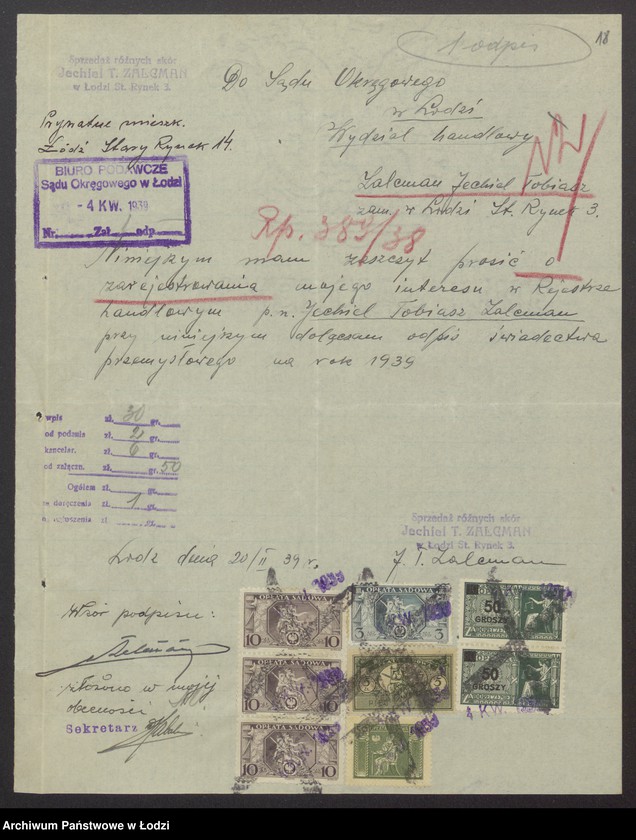 1 odpis
18
Sprzedaż różnych skór
Jechiel T. ZALCMAN
w Łodzi St. Rynek 3.
Do Sądu Okręgowego
w Łodzi
Wydział handlowy
Prywatne mieszk.
Łódź Stary Rynek 14.
BIURO PODAWCZE
Sądu Okręgowego w Łodzi
- 4 KW. 1939
Nr. Zał. odp.
Zalcman Jechiel Tobiasz
zam. w Łodzi St. Rynek 3.
Rp. 389/38
Niniejszym mam zaszczyt prosić o
zarejestrowania mojego interesu w Rejestrze
handlowym p.n. Jechiel Tobiasz Zalcman
przy niniejszym dołączam odpis świadectwa
przemysłowego na rok 1939
wpis zł. 30 gr.
od podania zł. 2 gr.
kancelar. zł. 6 gr.
od załączn. zł. gr. 50
Ogółem zł. gr.
za doręczenia zł. 1 gr.
ogłoszenia zł
Sprzedaż różnych skór
Jechiel T. ZALCMAN
w Łodzi St. Rynek 3.
Łódź dnia 20/II 39 r.
J. T. Zalcman
Wzór podpisu:
złożono w mojej
obecności
Sekretarz
OPŁATA SĄDOWA
10 10
OPŁATA SĄDOWA
3 3
50
GROSZY
OPŁATA SĄDOWA
10 10
50
GROSZY
4 KW.
OPŁATA SĄDOWA
10 10
Archiwum Państwowe w Łodzi